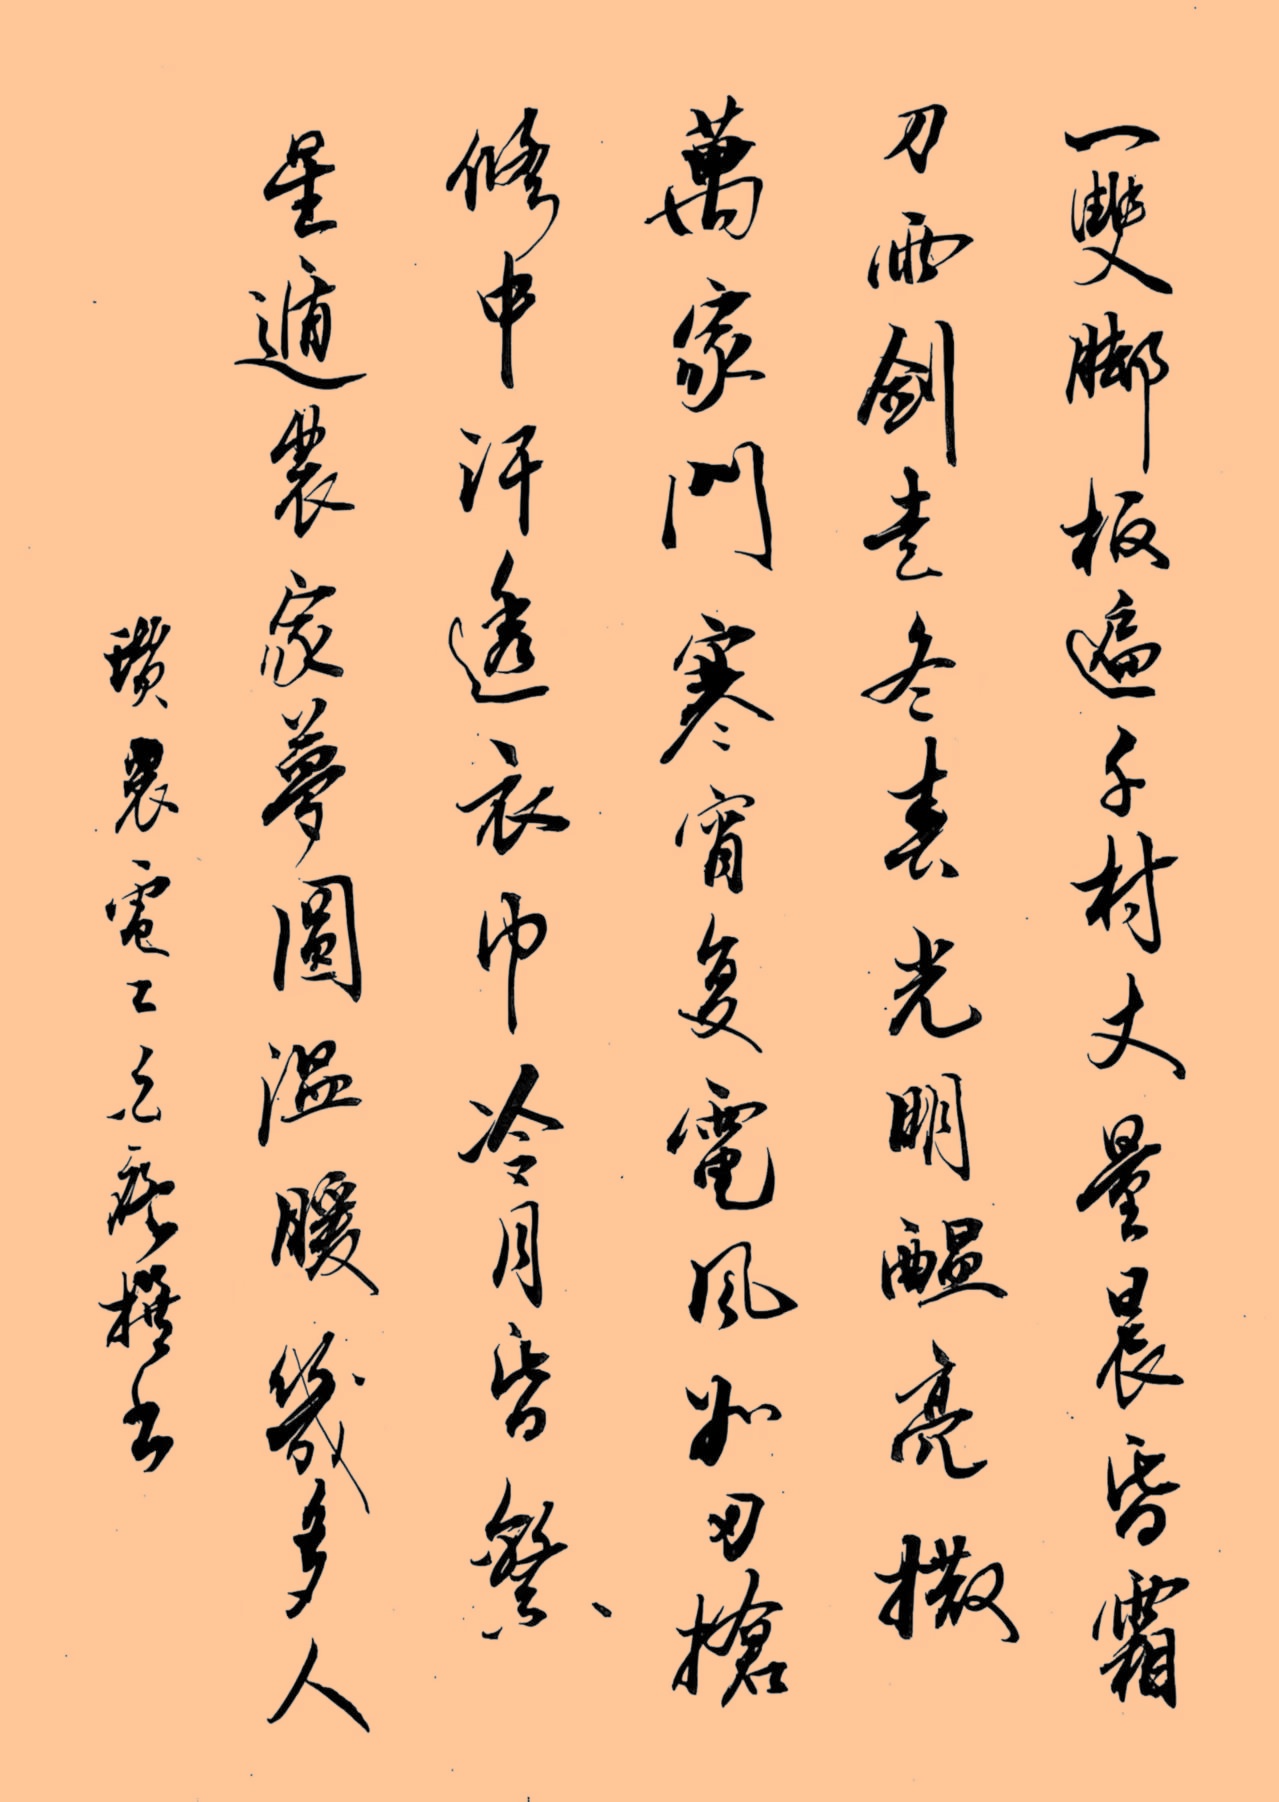 一雙脚板遍千村丈量晨昏霜
刀雨劍走冬春光明醖亮撒
萬家門寒宵复電風如刃搶
修中汗透衣巾冷月昏繁
星遁農家夢圓溫暖幾多人
讚農電工 撰书